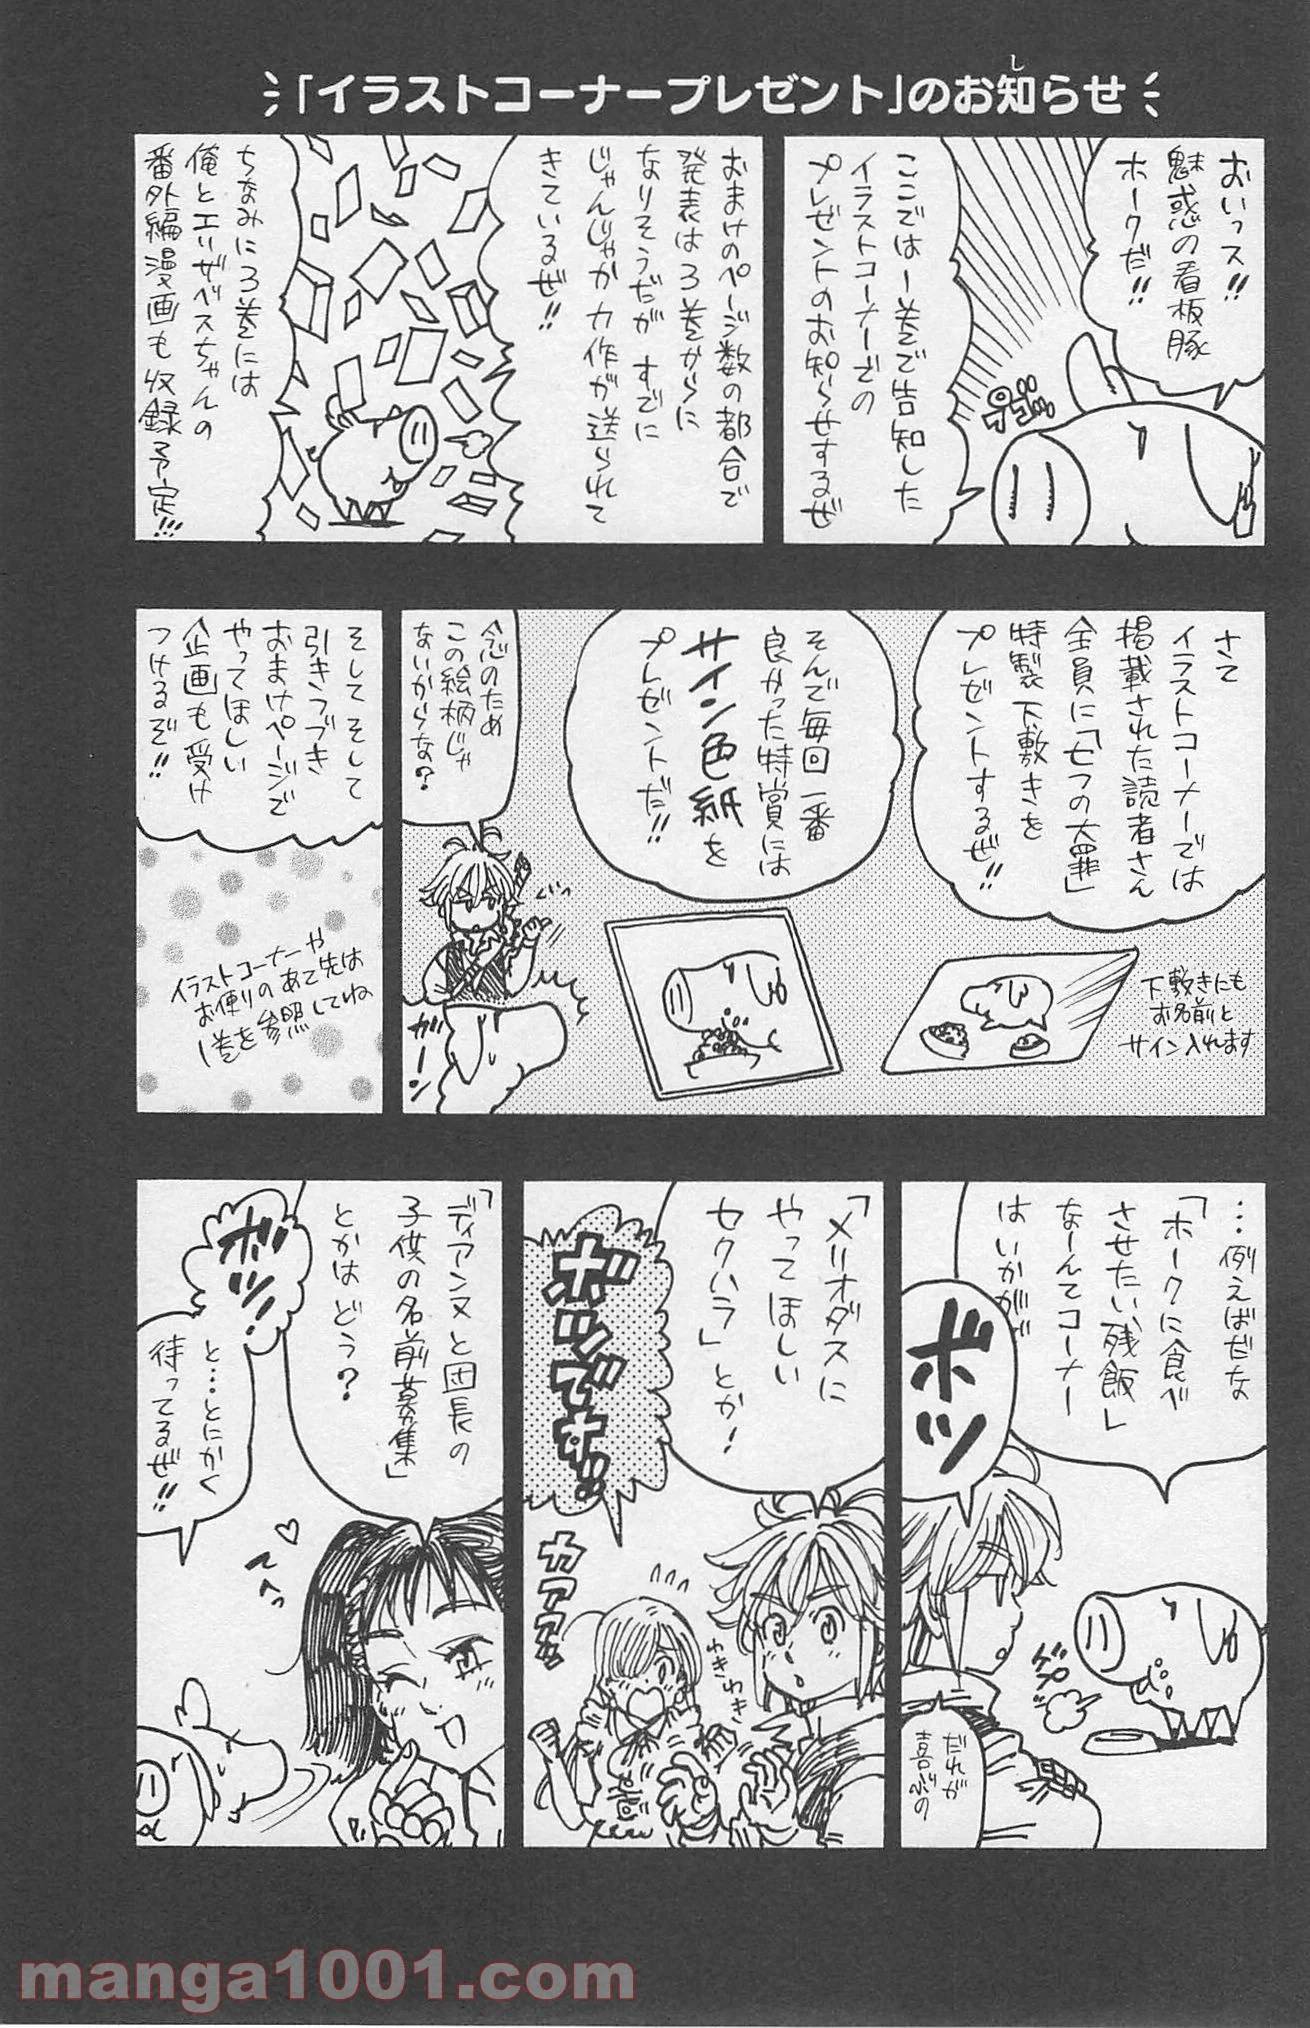 「イラストコーナープレゼント」のお知らせ
し
おいっス!!
魅惑の看板豚
ホークだ!!
プゴッ
ここでは一巻で告知した
イラストコーナーでの
プレゼントのお知らせするぜ
おまけのページ数の都合で
発表は3巻からに
なりそうだが すでに
じゃんじゃか力作が送られて
きているぜ!!
ちなみに3巻には
俺とエリザベスちゃんの
番外編漫画も収録予定!!!
さて
イラストコーナーでは
掲載された読者さん
全員に「七つの大罪」
特製 下敷きを
プレゼントするぜ!!
下敷きにも
お名前と
サイン入れます
そんで毎回一番
良かった特賞には
サイン色紙を
プレゼントだ!!
念のため
この絵柄じゃ
ないからな?
ぐっ
ガーン
そして そして
引きつづき
おまけページで
やってほしい
企画も受け
つけるぞ!!
イラストコーナーや
お便りのあて先は
1巻を参照してね
…例えばだな
「ホークに食べ
させたい残飯」
なーんてコーナー
はいかが
ボツ
ゲプ
だれが
喜ぶの
「メリオダスに
やってほしい
セクハラ」とか!
ボツです!!
カアアアッ
わきわき
「ディアンヌと団長の
子供の名前募集」
とかは どう?
ボツ!
と…とにかく
待ってるぜ!!
てへ
manga1001.com